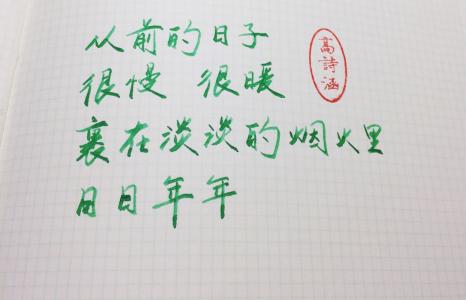 从前的日子
很慢 很暖
裹在淡淡的烟火里
日日年年
高詩涵